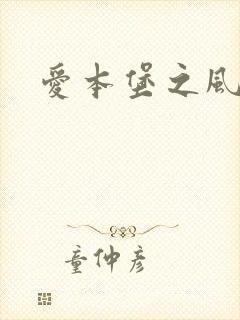 愛本堡之風
童仲彥